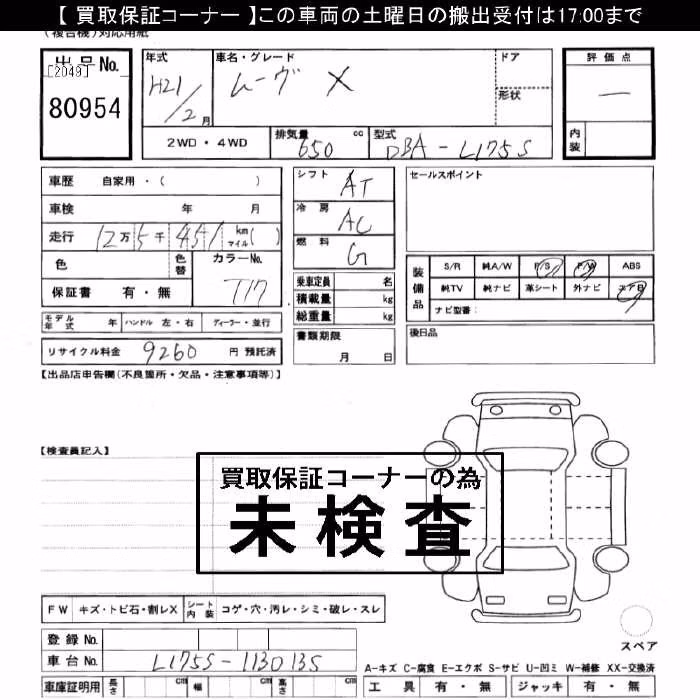 【 買取保証コーナー 】この車両の土曜日の搬出受付は17:00まで
(複合機)対応用紙
出品No.
[2049]
80954
年式
H21/2月
車名・グレード
ムーヴ X
ドア
形状
評価点
―
内装
2WD・4WD
排気量 650 cc
型式 DBA-L175S
車歴 自家用・( )
車検 年 月
走行 12万5千451 km マイル( )
色
色替
カラーNo.
T17
保証書 有・無
モデル年式 年 ハンドル 左・右 ディーラー・並行
リサイクル料金 9260 円 預託済
シフト AT
冷房 AC
燃料 G
乗車定員 名
積載量 kg
総重量 kg
書類期限
月 日
セールスポイント
装備品
S/R 純A/W P/S P/W ABS
純TV 純ナビ 革シート 外ナビ エアB
ナビ型番:
後日品
【出品店申告欄(不良箇所・欠品・注意事項等)】
【検査員記入】
買取保証コーナーの為
未検査
FW キズ・トビ石・割レX シート内装 コゲ・穴・汚レ・シミ・破レ・スレ
登録No.
車台No. L175S-1130135
車庫証明用 長さ cm 幅 cm 高さ cm
スペア
A-キズ C-腐食 E-エクボ S-サビ U-凹ミ W-補修 XX-交換済
工具 有・無 ジャッキ 有・無